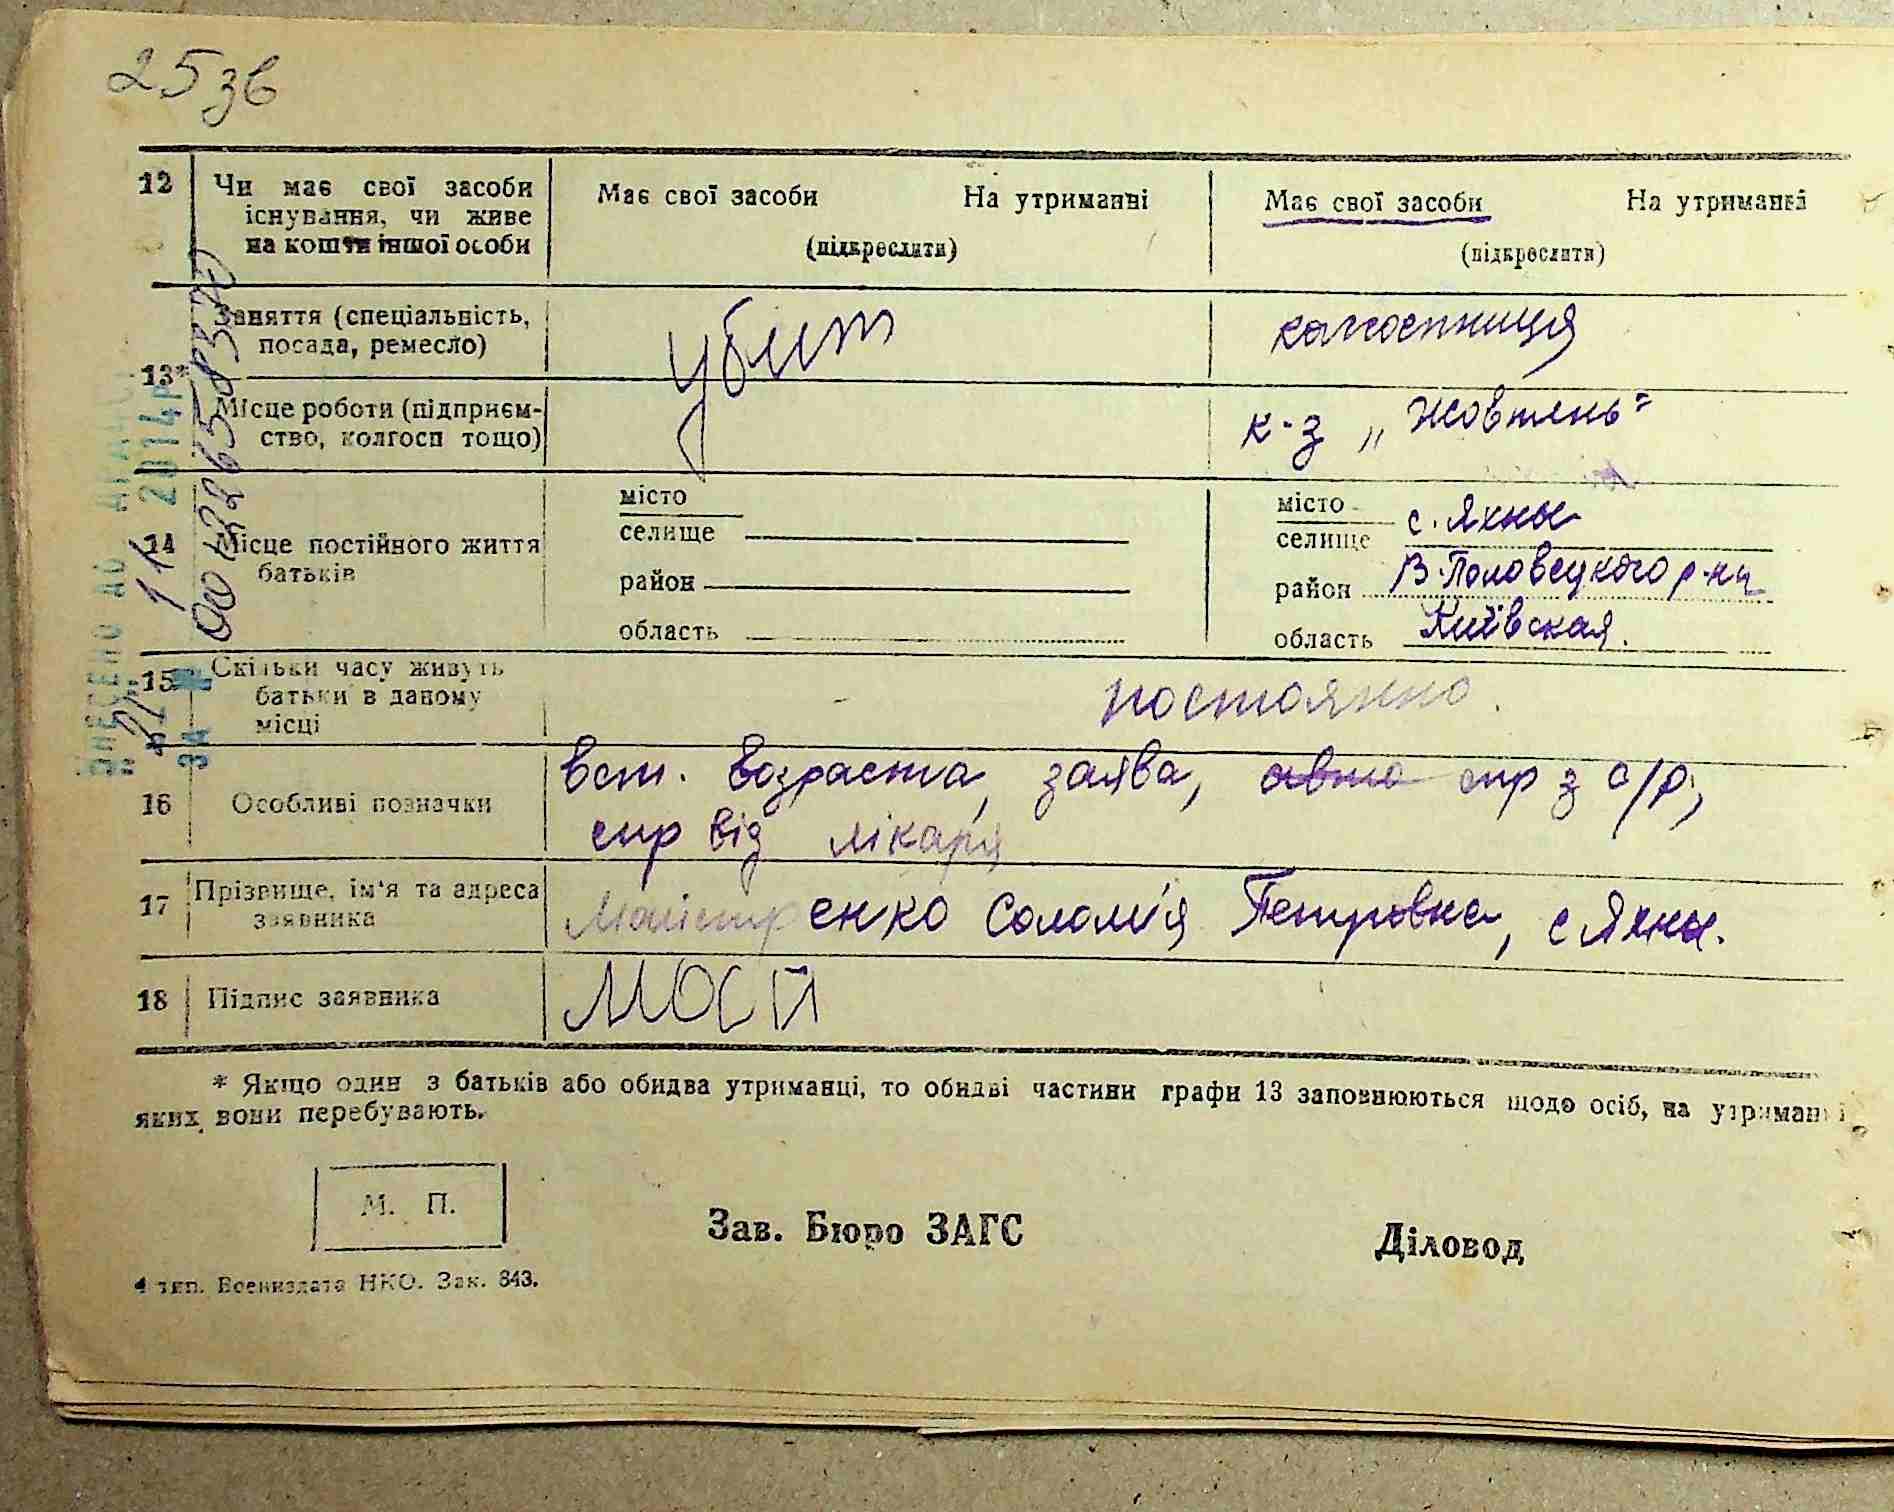 25 зв
12 Чи має свої засоби існування, чи живе на кошти іншої особи
Має свої засоби На утриманні
(підкреслити)
Має свої засоби На утриманні
(підкреслити)
13*
Заняття (спеціальність, посада, ремесло)
убит
колгоспниця
Місце роботи (підприєм-
ство, колгосп тощо)
к-з „Жовтень"
14 Місце постійного життя батьків
місто
селище
район
область
місто
селище с. Яхны
район В-Половецкого р-на
область Київская.
15 Скільки часу живуть батьки в даному місці
постоянно.
16 Особливі позначки
вст. возраста, заява, спр з с/р,
спр від лікаря
17 Прізвище, ім'я та адреса заявника
Майстренко Соломія Петровна, с Яхны.
18 Підпис заявника
* Якщо один з батьків або обидва утриманці, то обидві частини графи 13 заповнюються щодо осіб, на утриманні
яких вони перебувають.
М. П.
Зав. Бюро ЗАГС
Діловод
4 тип. Воениздата НКО. Зак. 843.
ВНЕСЕНО ДО
2014р